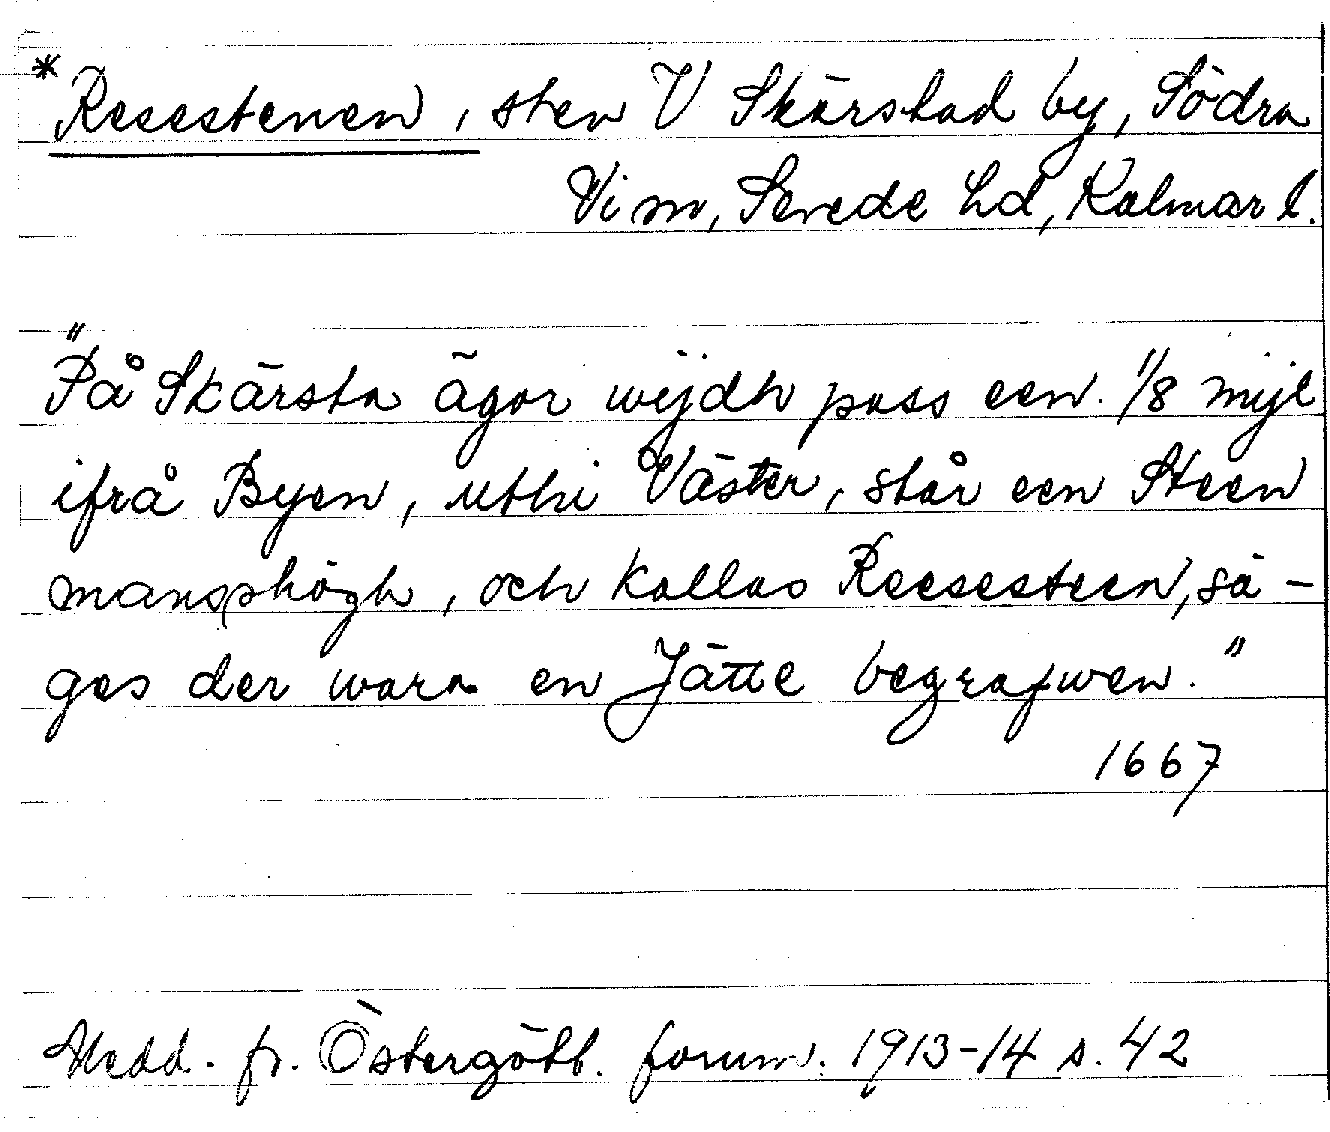 * Resestenen, sten V Skärstad by, Södra
Vi sn, Sevede hd, Kalmar l.
"På Skärsta ägor wijdh pass een 1/8 mijl
ifrå Byen, uthi Väster, står een Steen
manshögh, och kallas Reesesteen, sä-
ges der wara en Jätte begrafwen."
1667
Medd. fr. Östergötl. fornm. 1913-14 s. 42